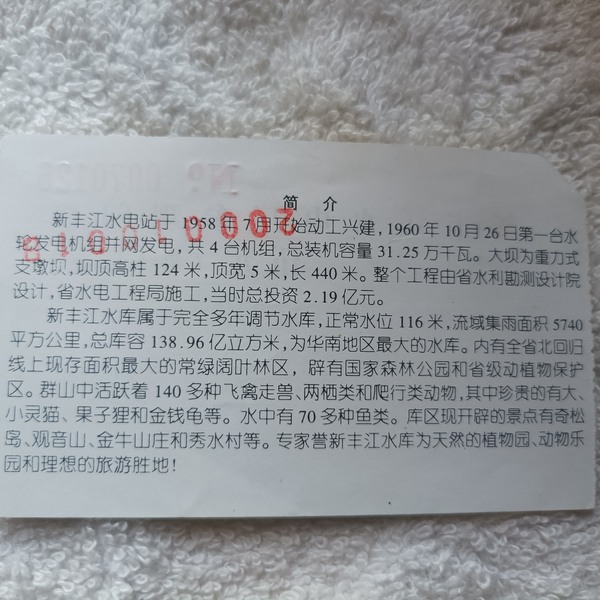 简 介
新丰江水电站于 1958 年 7月开始动工兴建，1960 年 10 月 26 日第一台水
轮发电机组并网发电，共 4 台机组，总装机容量 31.25 万千瓦。大坝为重力式
支墩坝，坝顶高柱 124 米，顶宽 5 米，长 440 米。整个工程由省水利勘测设计院
设计，省水电工程局施工，当时总投资 2.19 亿元。
新丰江水库属于完全多年调节水库，正常水位 116 米，流域集雨面积 5740
平方公里，总库容 138.96 亿立方米，为华南地区最大的水库。内有全省北回归
线上现存面积最大的常绿阔叶林区，辟有国家森林公园和省级动植物保护
区。群山中活跃着 140 多种飞禽走兽、两栖类和爬行类动物，其中珍贵的有大、
小灵猫、果子狸和金钱龟等。水中有 70 多种鱼类。库区现开辟的景点有奇松
岛、观音山、金牛山庄和秀水村等。专家誉新丰江水库为天然的植物园、动物乐
园和理想的旅游胜地！